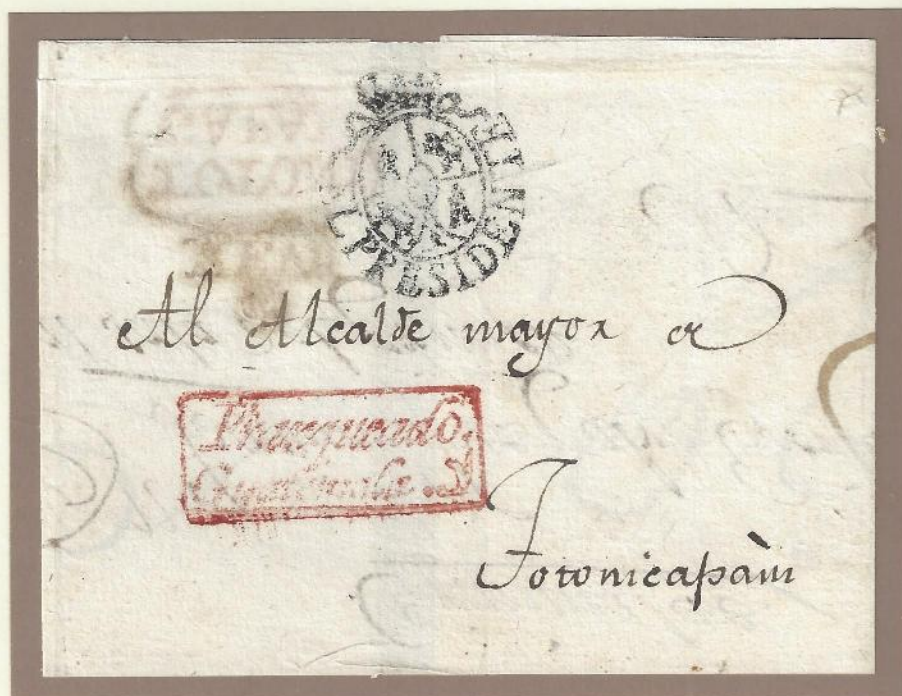 EL PRESIDENTE
Al Alcalde mayor de
Franqueado.
Guathemala.
Totonicapàm